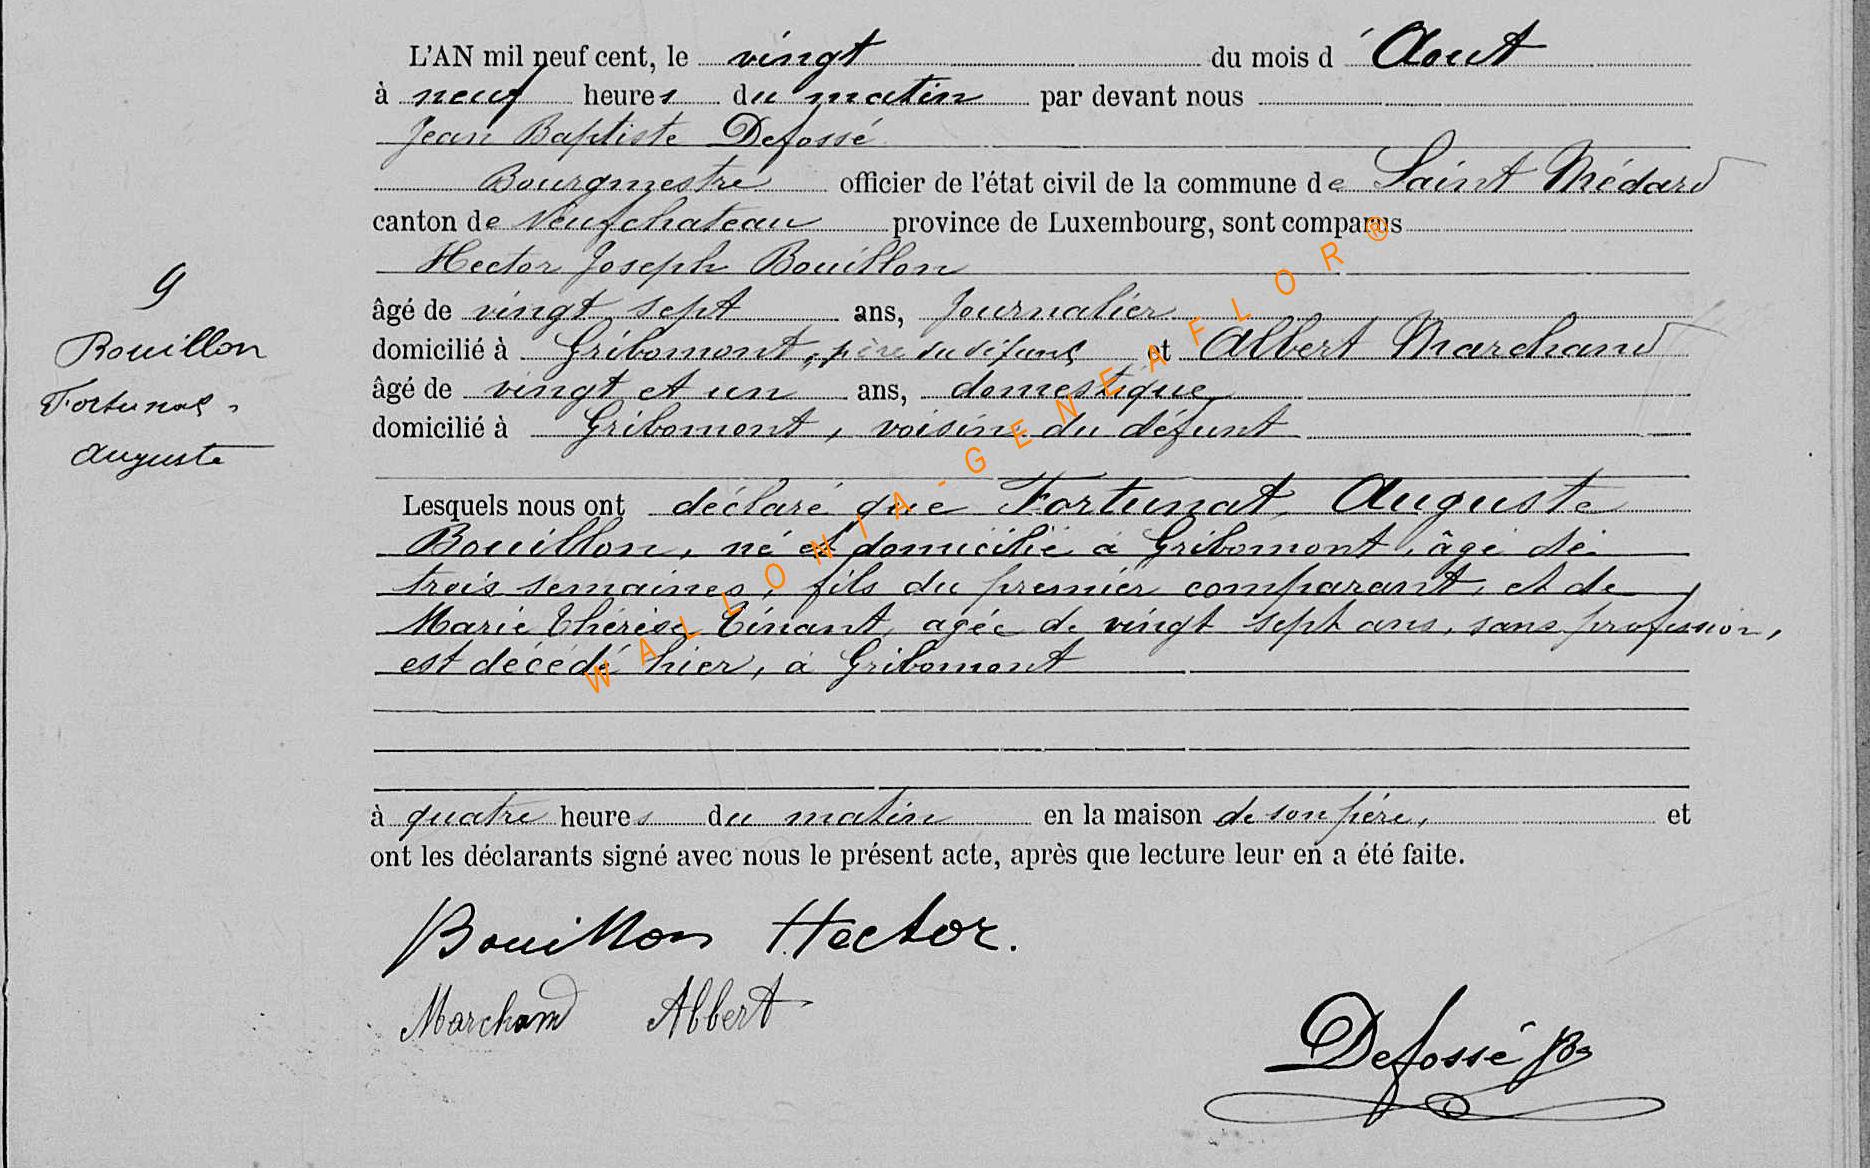 L'AN mil neuf cent, le vingt du mois d'Aout
à neuf heures du matin par devant nous
Jean Baptiste Defossé
Bourgmestre officier de l'état civil de la commune de Saint Médard
canton de Neufchateau province de Luxembourg, sont comparus
Hector Joseph Bouillon
âgé de vingt sept ans, journalier
domicilié à Gribomont, père du défunt et Albert Marchand
âgé de vingt et un ans, domestique
domicilié à Gribomont, voisin du défunt
9
Bouillon
Fortunat
Auguste
Lesquels nous ont déclaré que Fortunat, Auguste
Bouillon, né et domicilié à Gribomont, âgé de
trois semaines, fils du premier comparant, et de
Marie Thérèse Tinant, agée de vingt sept ans, sans profession,
est décédé hier, à Gribomont
à quatre heures du matin en la maison de son père, et
ont les déclarants signé avec nous le présent acte, après que lecture leur en a été faite.
Bouillon Hector.
Marchand Albert
Defossé JB
WALLONIA-GENEAFLOR®